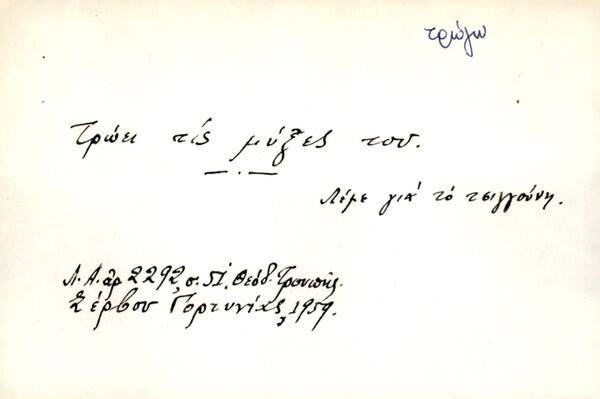 τρώγω
Τρώει τίς μύξες του.
Λέμε γιά τό τσιγγούνη.
Λ.Α. ἀρ 2292, σ. 51, Θεόδ. Τρουπῆς.
Σέρβου Γορτυνίας, 1959.